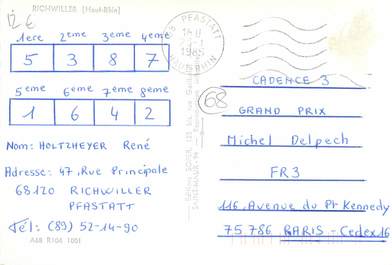 12 €
RICHWILLER (Haut-Rhin)
1ere 2eme 3eme 4eme
5 3 8 7
5eme 6eme 7eme 8eme
1 6 4 2
Nom: HOLTZHEYER René
Adresse: 47, Rue Principale
68120 RICHWILLER
PFASTATT
Tél: (89) 52-14-90
A68 R104 1001
68 PFASTATT
1985
HAUT-RHIN
68
CADENCE 3
GRAND PRIX
Michel Delpech
FR3
116, Avenue du Pt Kennedy
75.786 PARIS - Cedex 16